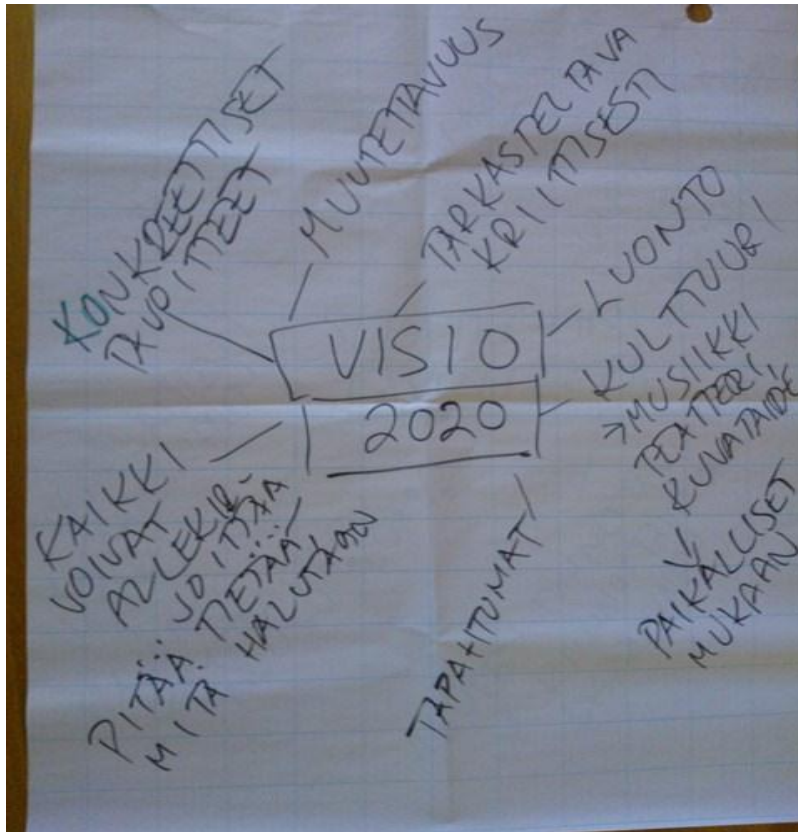 KONKREETTISET
TAVOITTEET
MUUTETTAVUUS
TARKASTELTAVA
KRIITTISESTI
VISIO
2020
LUONTO
KULTTUURI
→ MUSIIKKI
TEATTERI,
KUVATAIDE
PAIKALLISET
MUKAAN
TAPAHTUMAT
KAIKKI
VOIVAT
ALLEKIR-
JOITTAA
PITÄÄ TIETÄÄ
MITÄ HALUTAAN